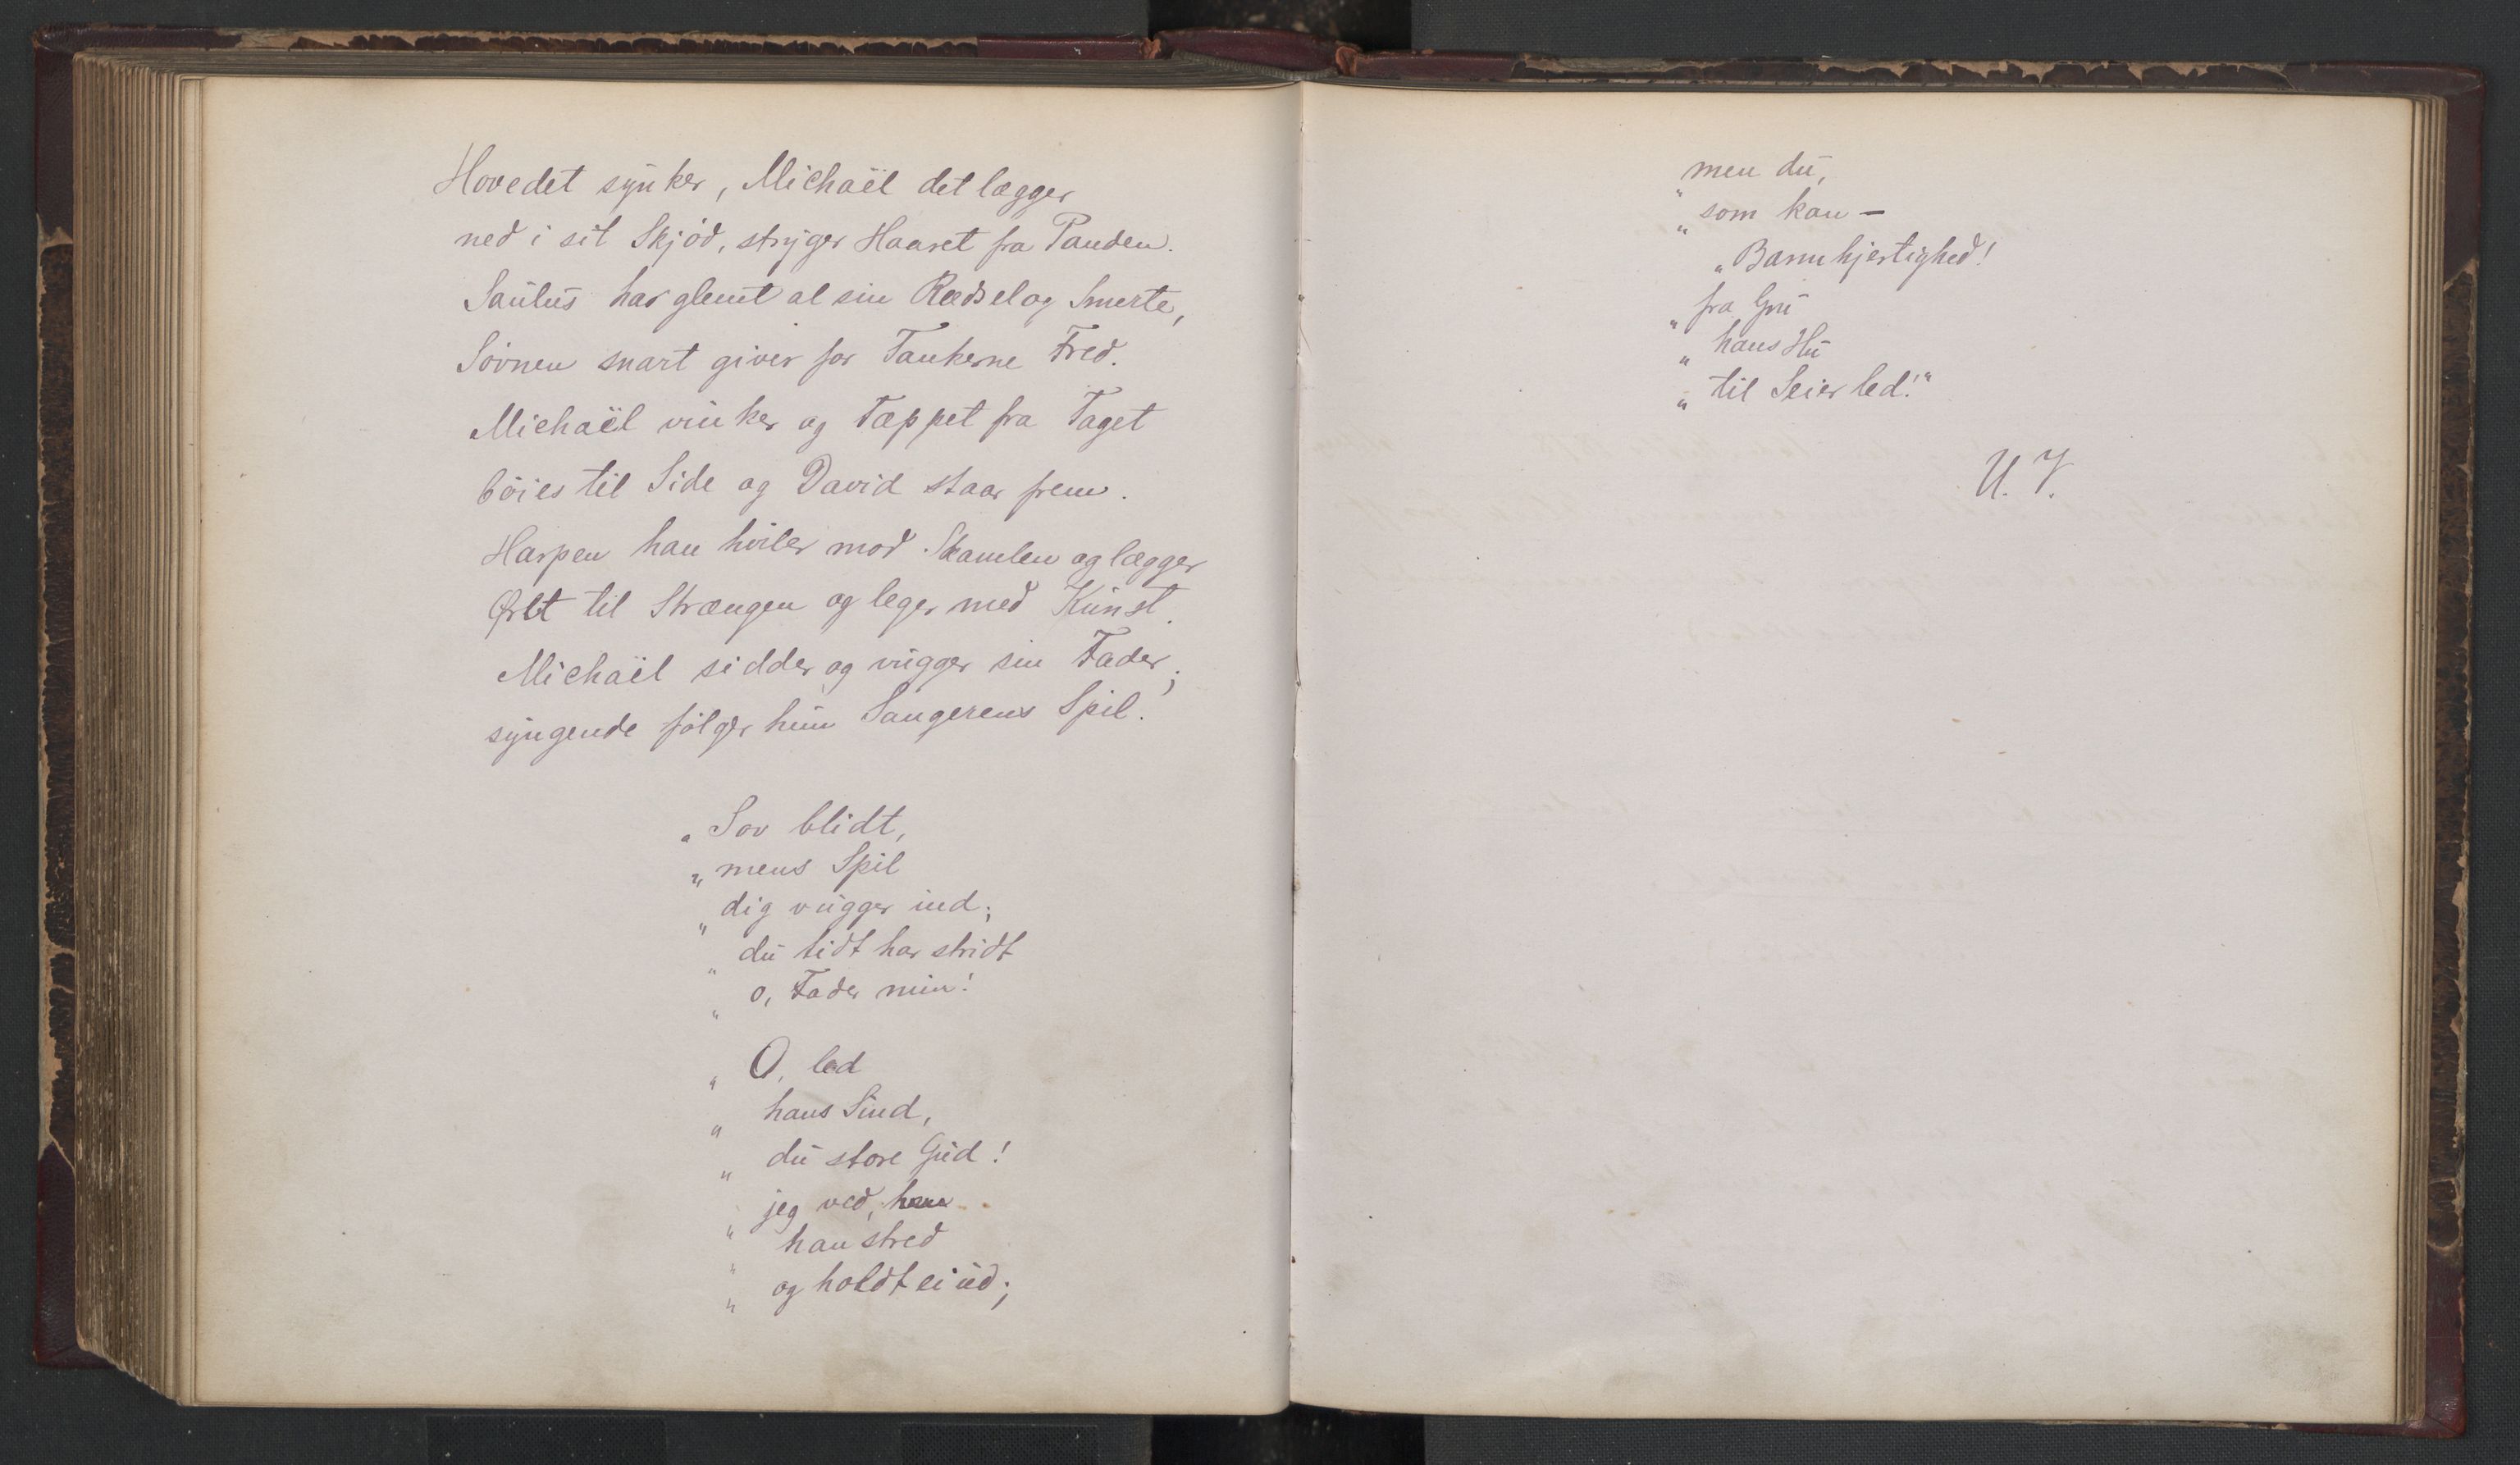 Hovedet synker, Michaël det lægger
ned i sit Skjód, stryger Haaret fra Panden.
Saulus har glemt al sin Rædsel og Smerte,
Sövnen snart giver for Tankerne Fred.
Michaël vinker og Tæppet fra Taget
böies til Side og David staar frem.
Harpen han hviler mod Skamlen og lægger
Øret til Strængen og leger med Kunst.
Michaël sidder og vugger sin Fader;
syngende fölger hun Sangerens Spil.
„Sov blidt,
„mens Spil
„dig vugger ind;
„du tidt har stridt
„o, Fader min!
„O, led
„hans Sind,
„du store Gud!
„jeg ved,
„han stred
„og holdt ei ud;
„men du,
„som kan –
„Barmhjertighed!
„fra Gru
„hans Hu
„til Seier led!"
U. V.